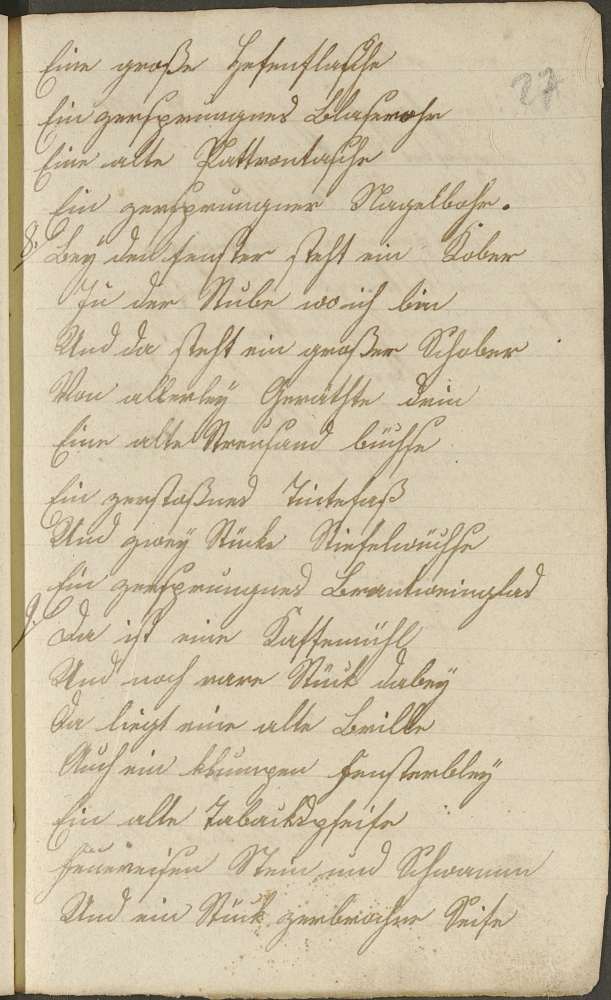 27
Eine große Hefenflasche
Ein zersprungnes Blaserohr
Eine alte Pattrontasche
Ein zersprungner Nagelbohr.
8. Bey den Fenster steht ein Kober
In der Stube wo ich bin
Und da steht ein großer Schober
Von allerley Geräthte drin
Eine alte Streusand büchse
Ein zerstoßnes Tintefaß
Und zwey Stücke Stiefelwüchse
Ein zersprungnes Brantweinglas
9. Da ist eine Kaffemühl
Und noch rare Stück dabey
Da liegt eine alte Brille
Auch ein klumpen Fensterbley
Ein alte Tabackspfeife
Feuereisen Stein und Schwamm
Und ein Stück zerbrochne Seife